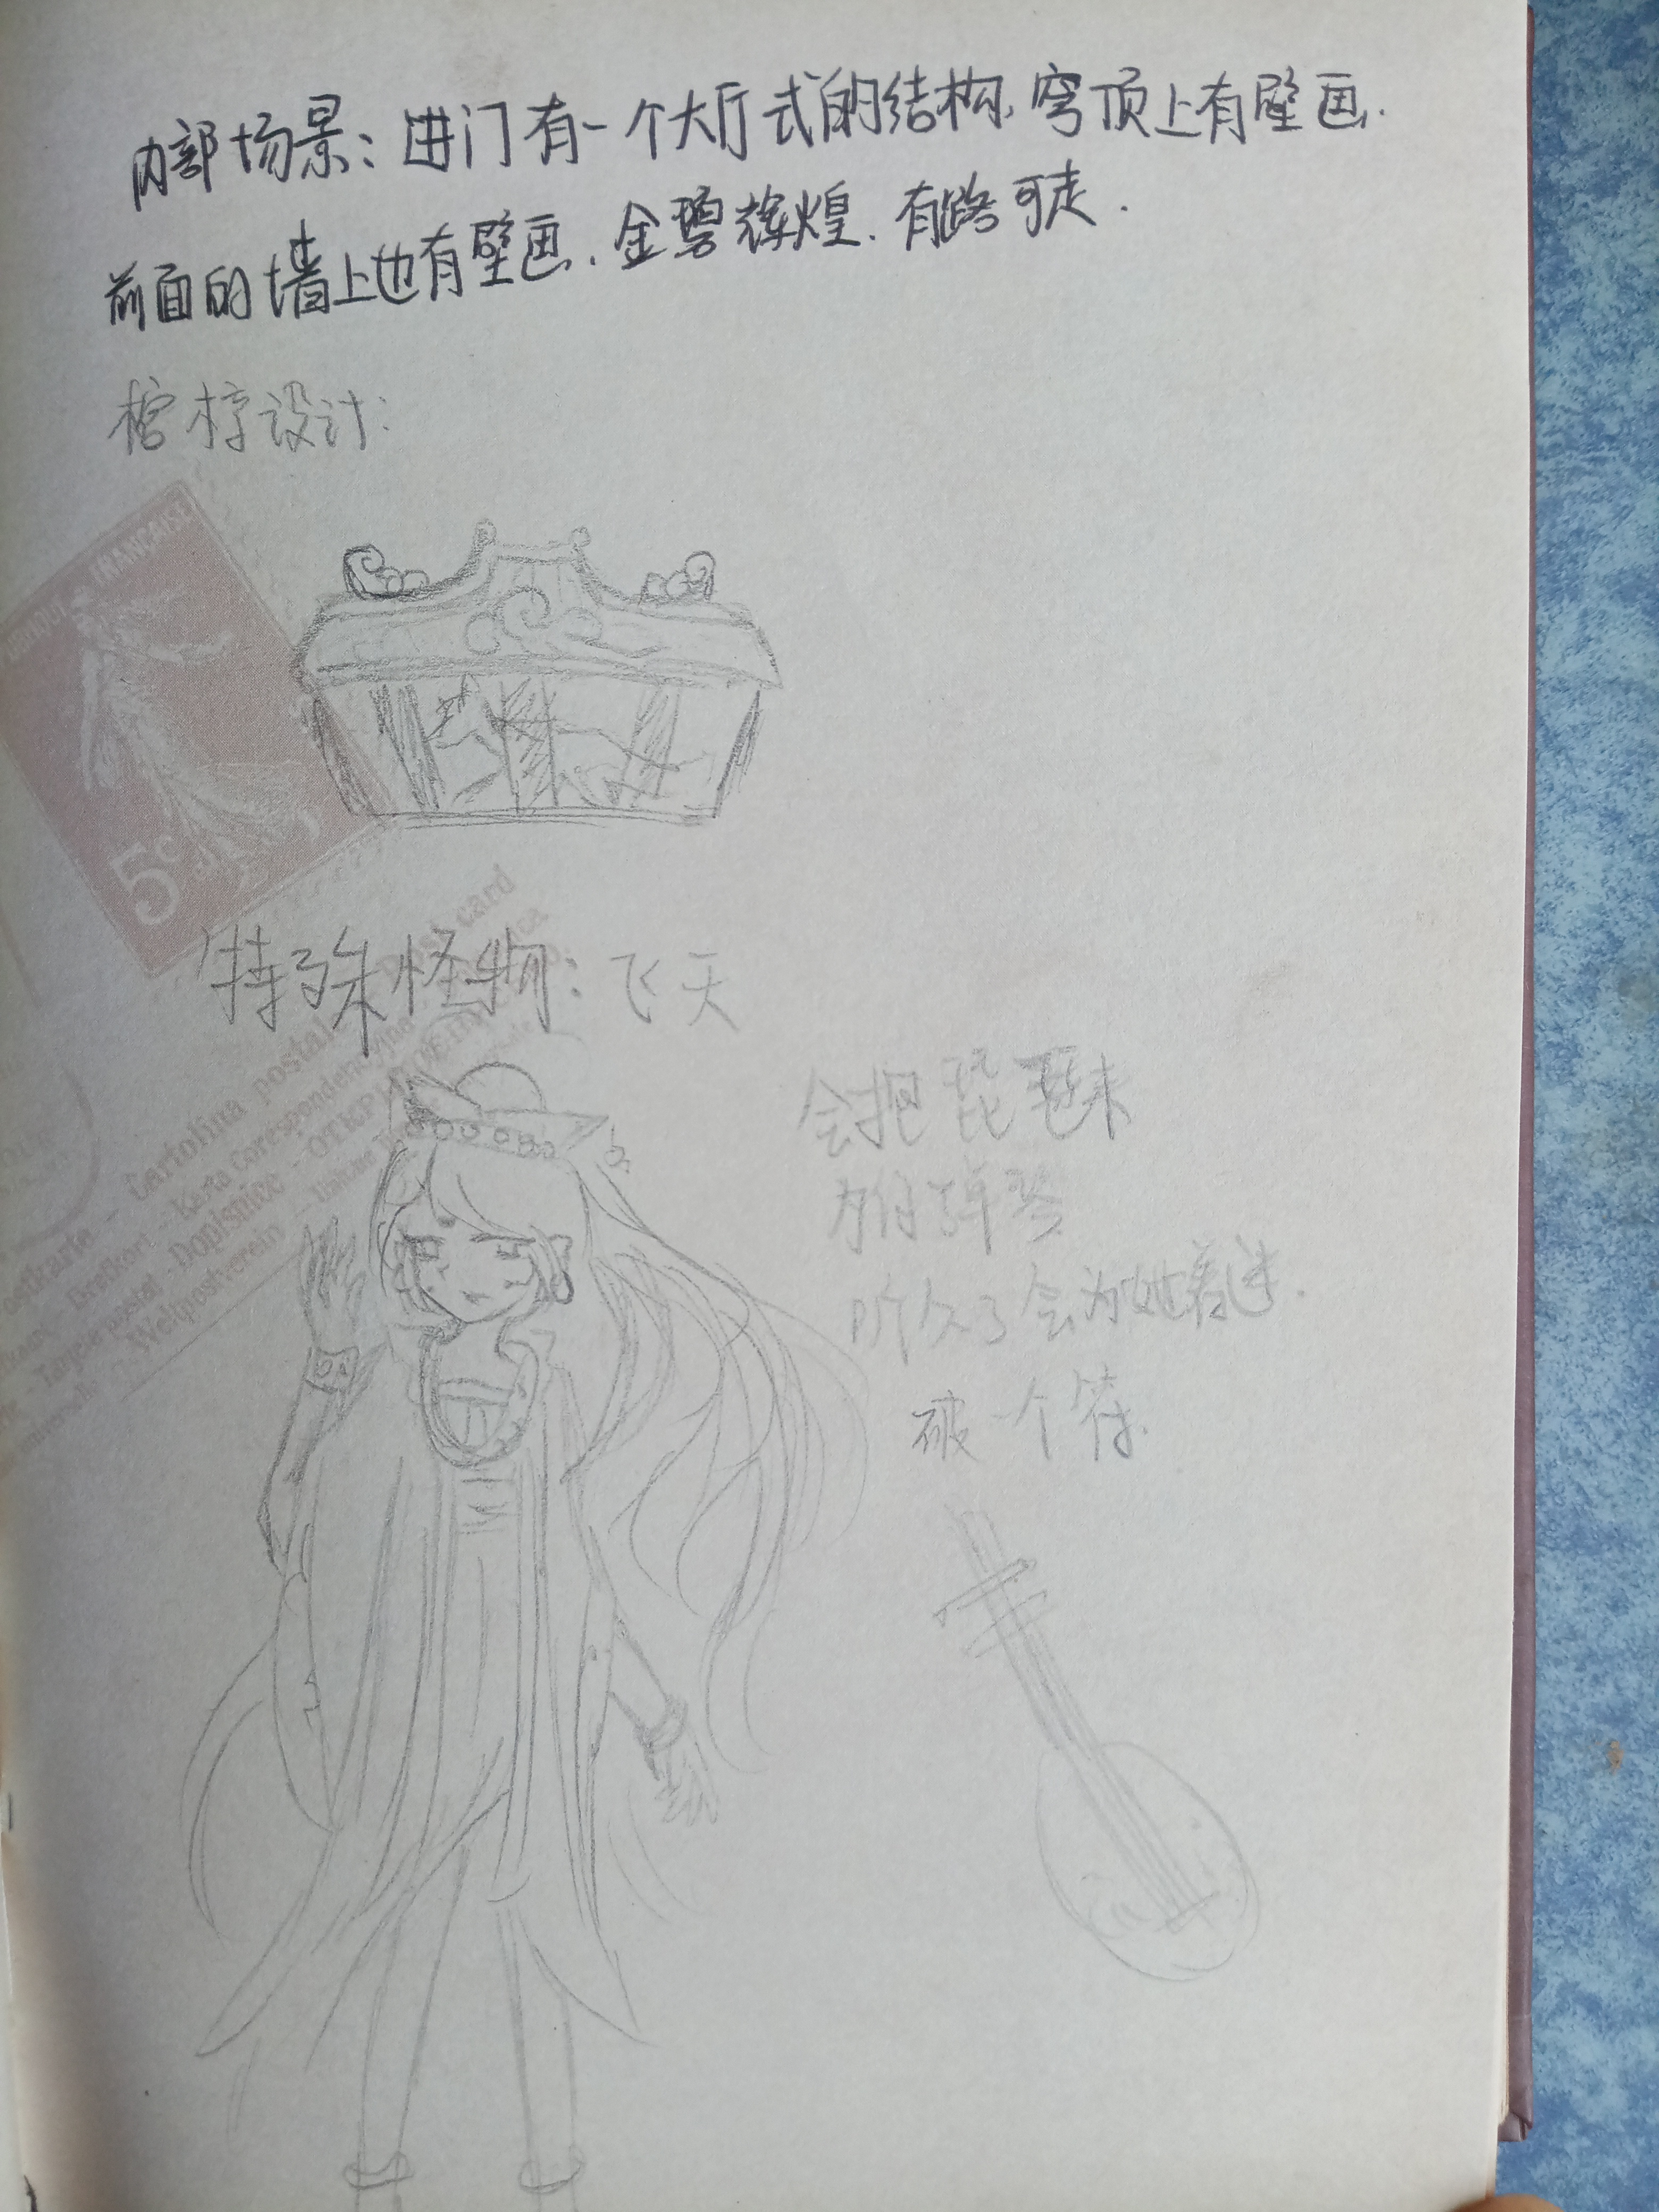 内部场景：进门有一个大厅式的结构，穹顶上有壁画.
前面的墙上也有壁画.金碧辉煌.有路可走.
棺椁设计：
FRANCAISE
5c
Post card
特殊怪物：飞天
Cartolina postale
Dopisnice
Weltpostverein
会把琵琶来
为你弹琴
听久了会为她着迷.
破一个符.